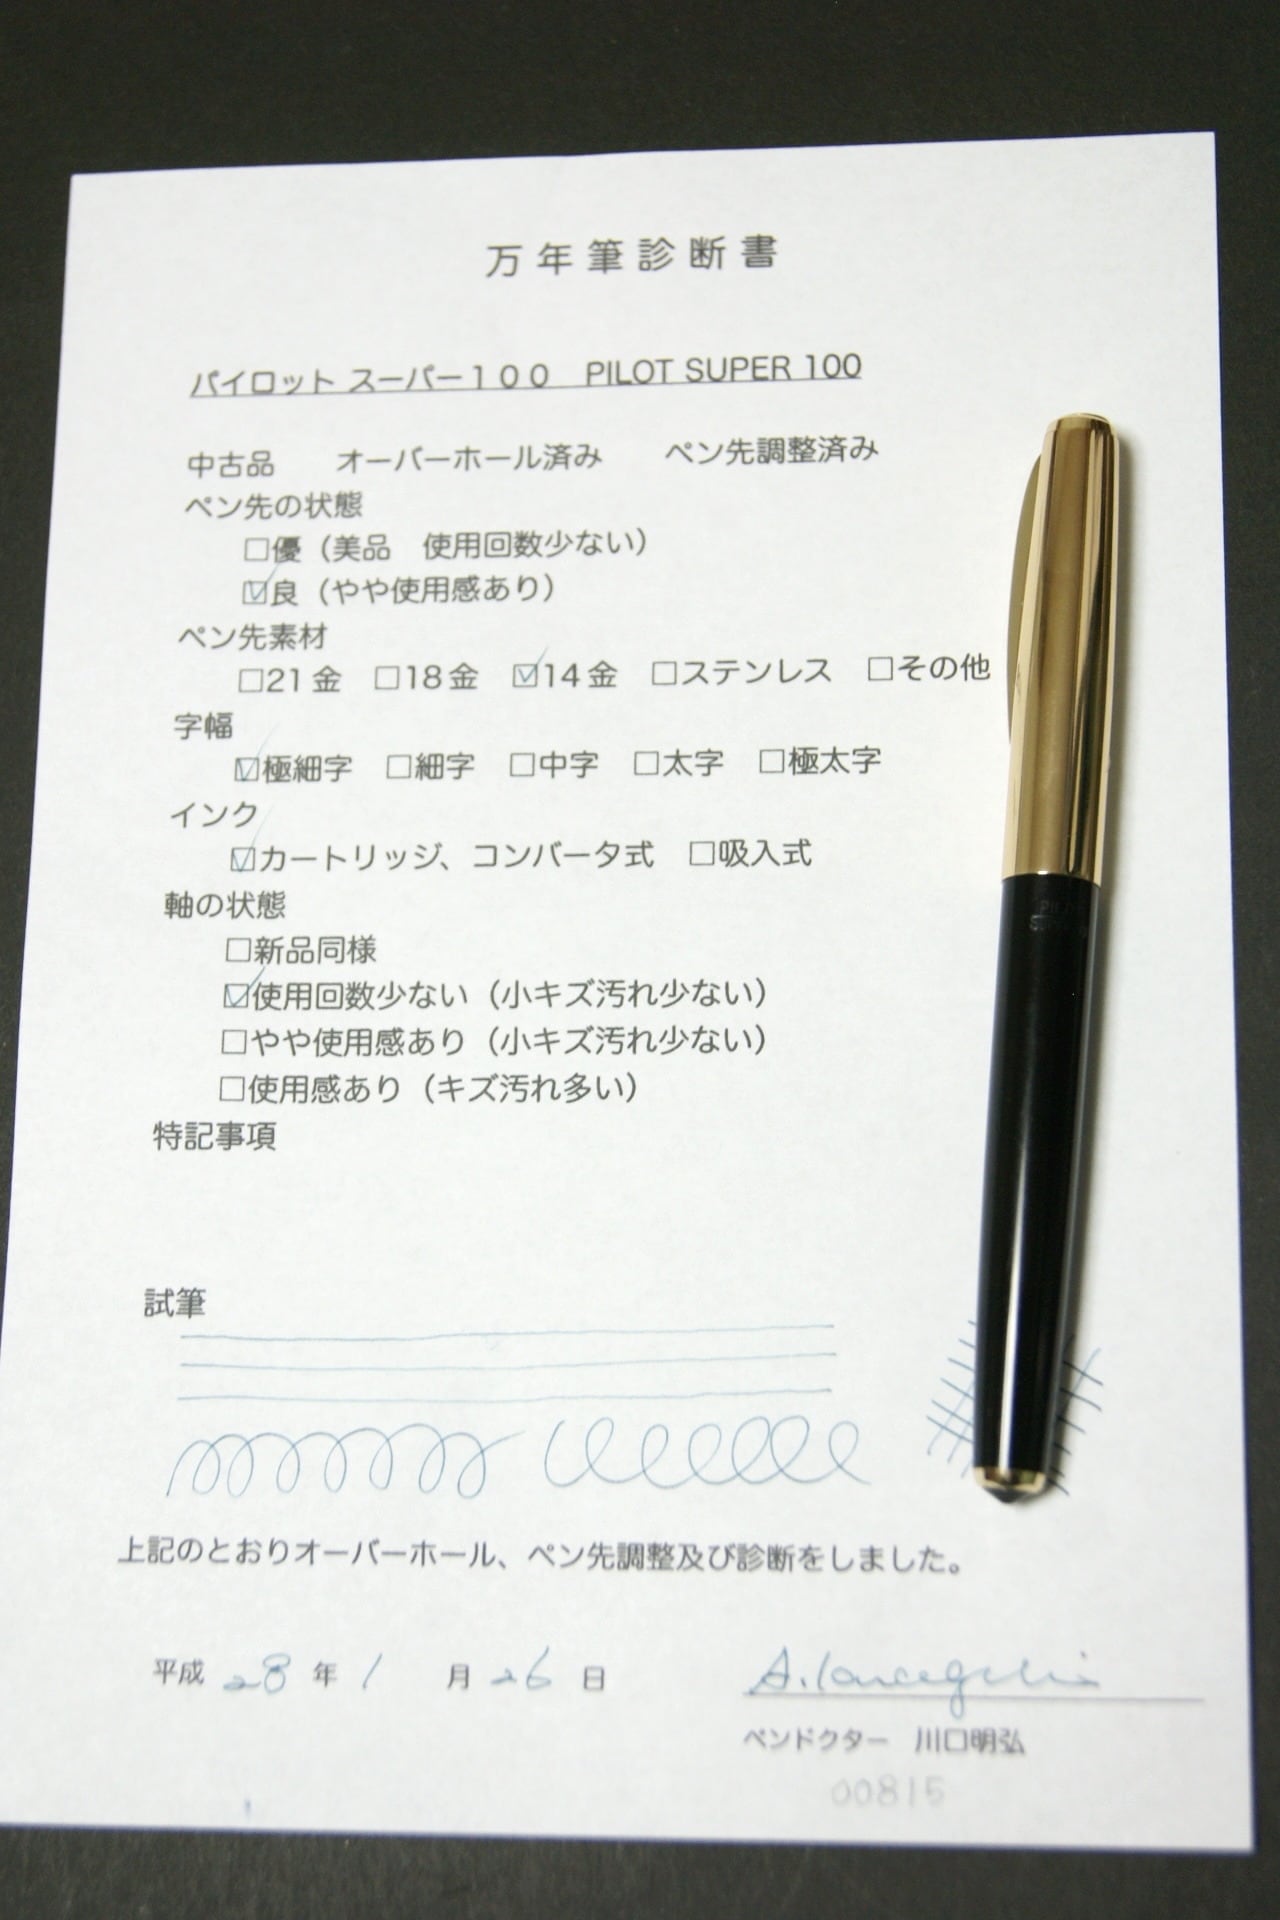 万年筆診断書
パイロット スーパー１００　PILOT SUPER 100
中古品　　オーバーホール済み　　ペン先調整済み
ペン先の状態
□優（美品　使用回数少ない）
☑良（やや使用感あり）
ペン先素材
□21金　□18金　☑14金　□ステンレス　□その他
字幅
☑極細字　□細字　□中字　□太字　□極太字
インク
☑カートリッジ、コンバータ式　□吸入式
軸の状態
□新品同様
☑使用回数少ない（小キズ汚れ少ない）
□やや使用感あり（小キズ汚れ少ない）
□使用感あり（キズ汚れ多い）
特記事項
試筆
上記のとおりオーバーホール、ペン先調整及び診断をしました。
平成 28 年 1 月 26 日
ペンドクター　川口明弘
00815
PILOT